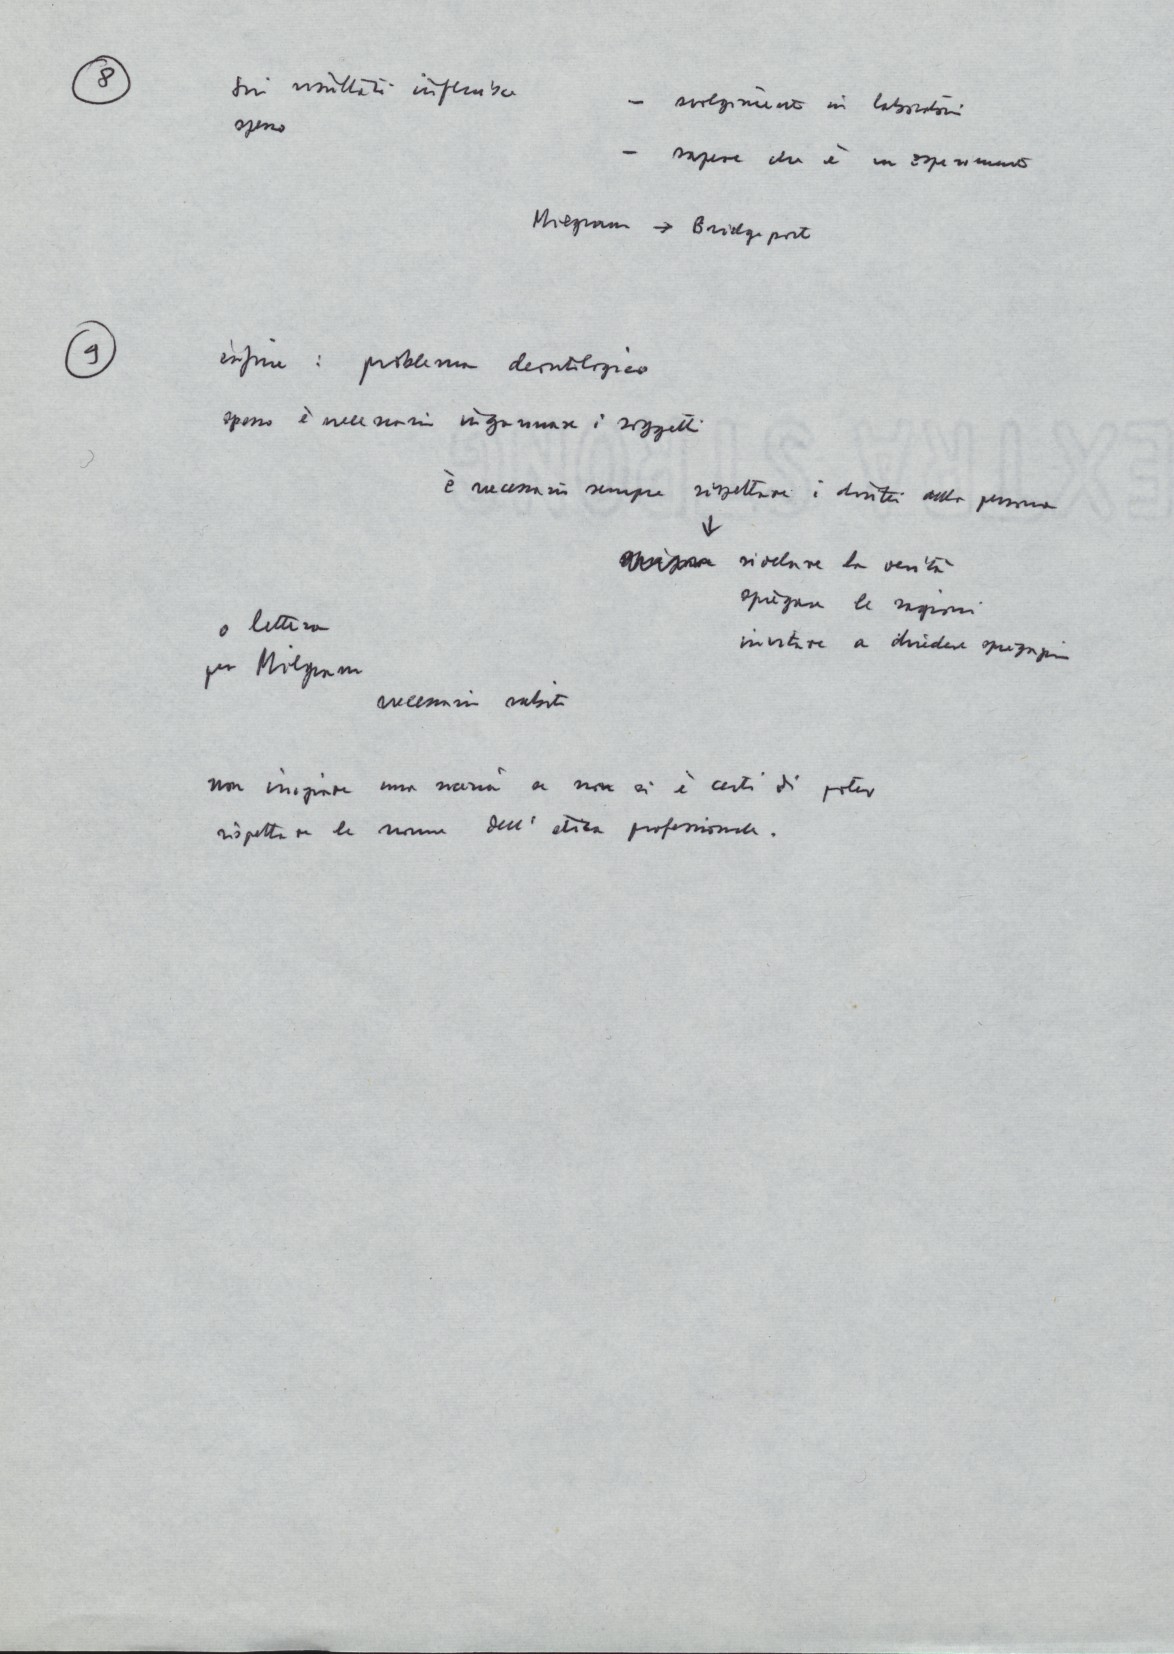 8
Sui risultati influisce
spesso
- svolgimento in laboratorio
- sapere che è un esperimento
Milgram → Bridgeport
9
infine : problema deontologico
spesso è necessario ingannare i soggetti
è necessario sempre rispettare i diritti della persona
↓
rivelare la verità
spiegare le ragioni
invitare a chiedere spiegazioni
o lettera
per Milgram
necessario subito
non iniziare una ricerca se non si è certi di poter
rispettare le norme dell' etica professionale.